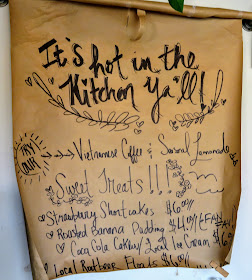 It's hot in the
Kitchen Ya'll!
Try
Vietnamese Coffee & Seasonal Lemonade
Sweet Treats!!!
Strawberry Shortcakes $6
Roasted Banana Pudding $4
Coca Cola Cakes/ Ice Cream $6
Local Rootbeer Floats